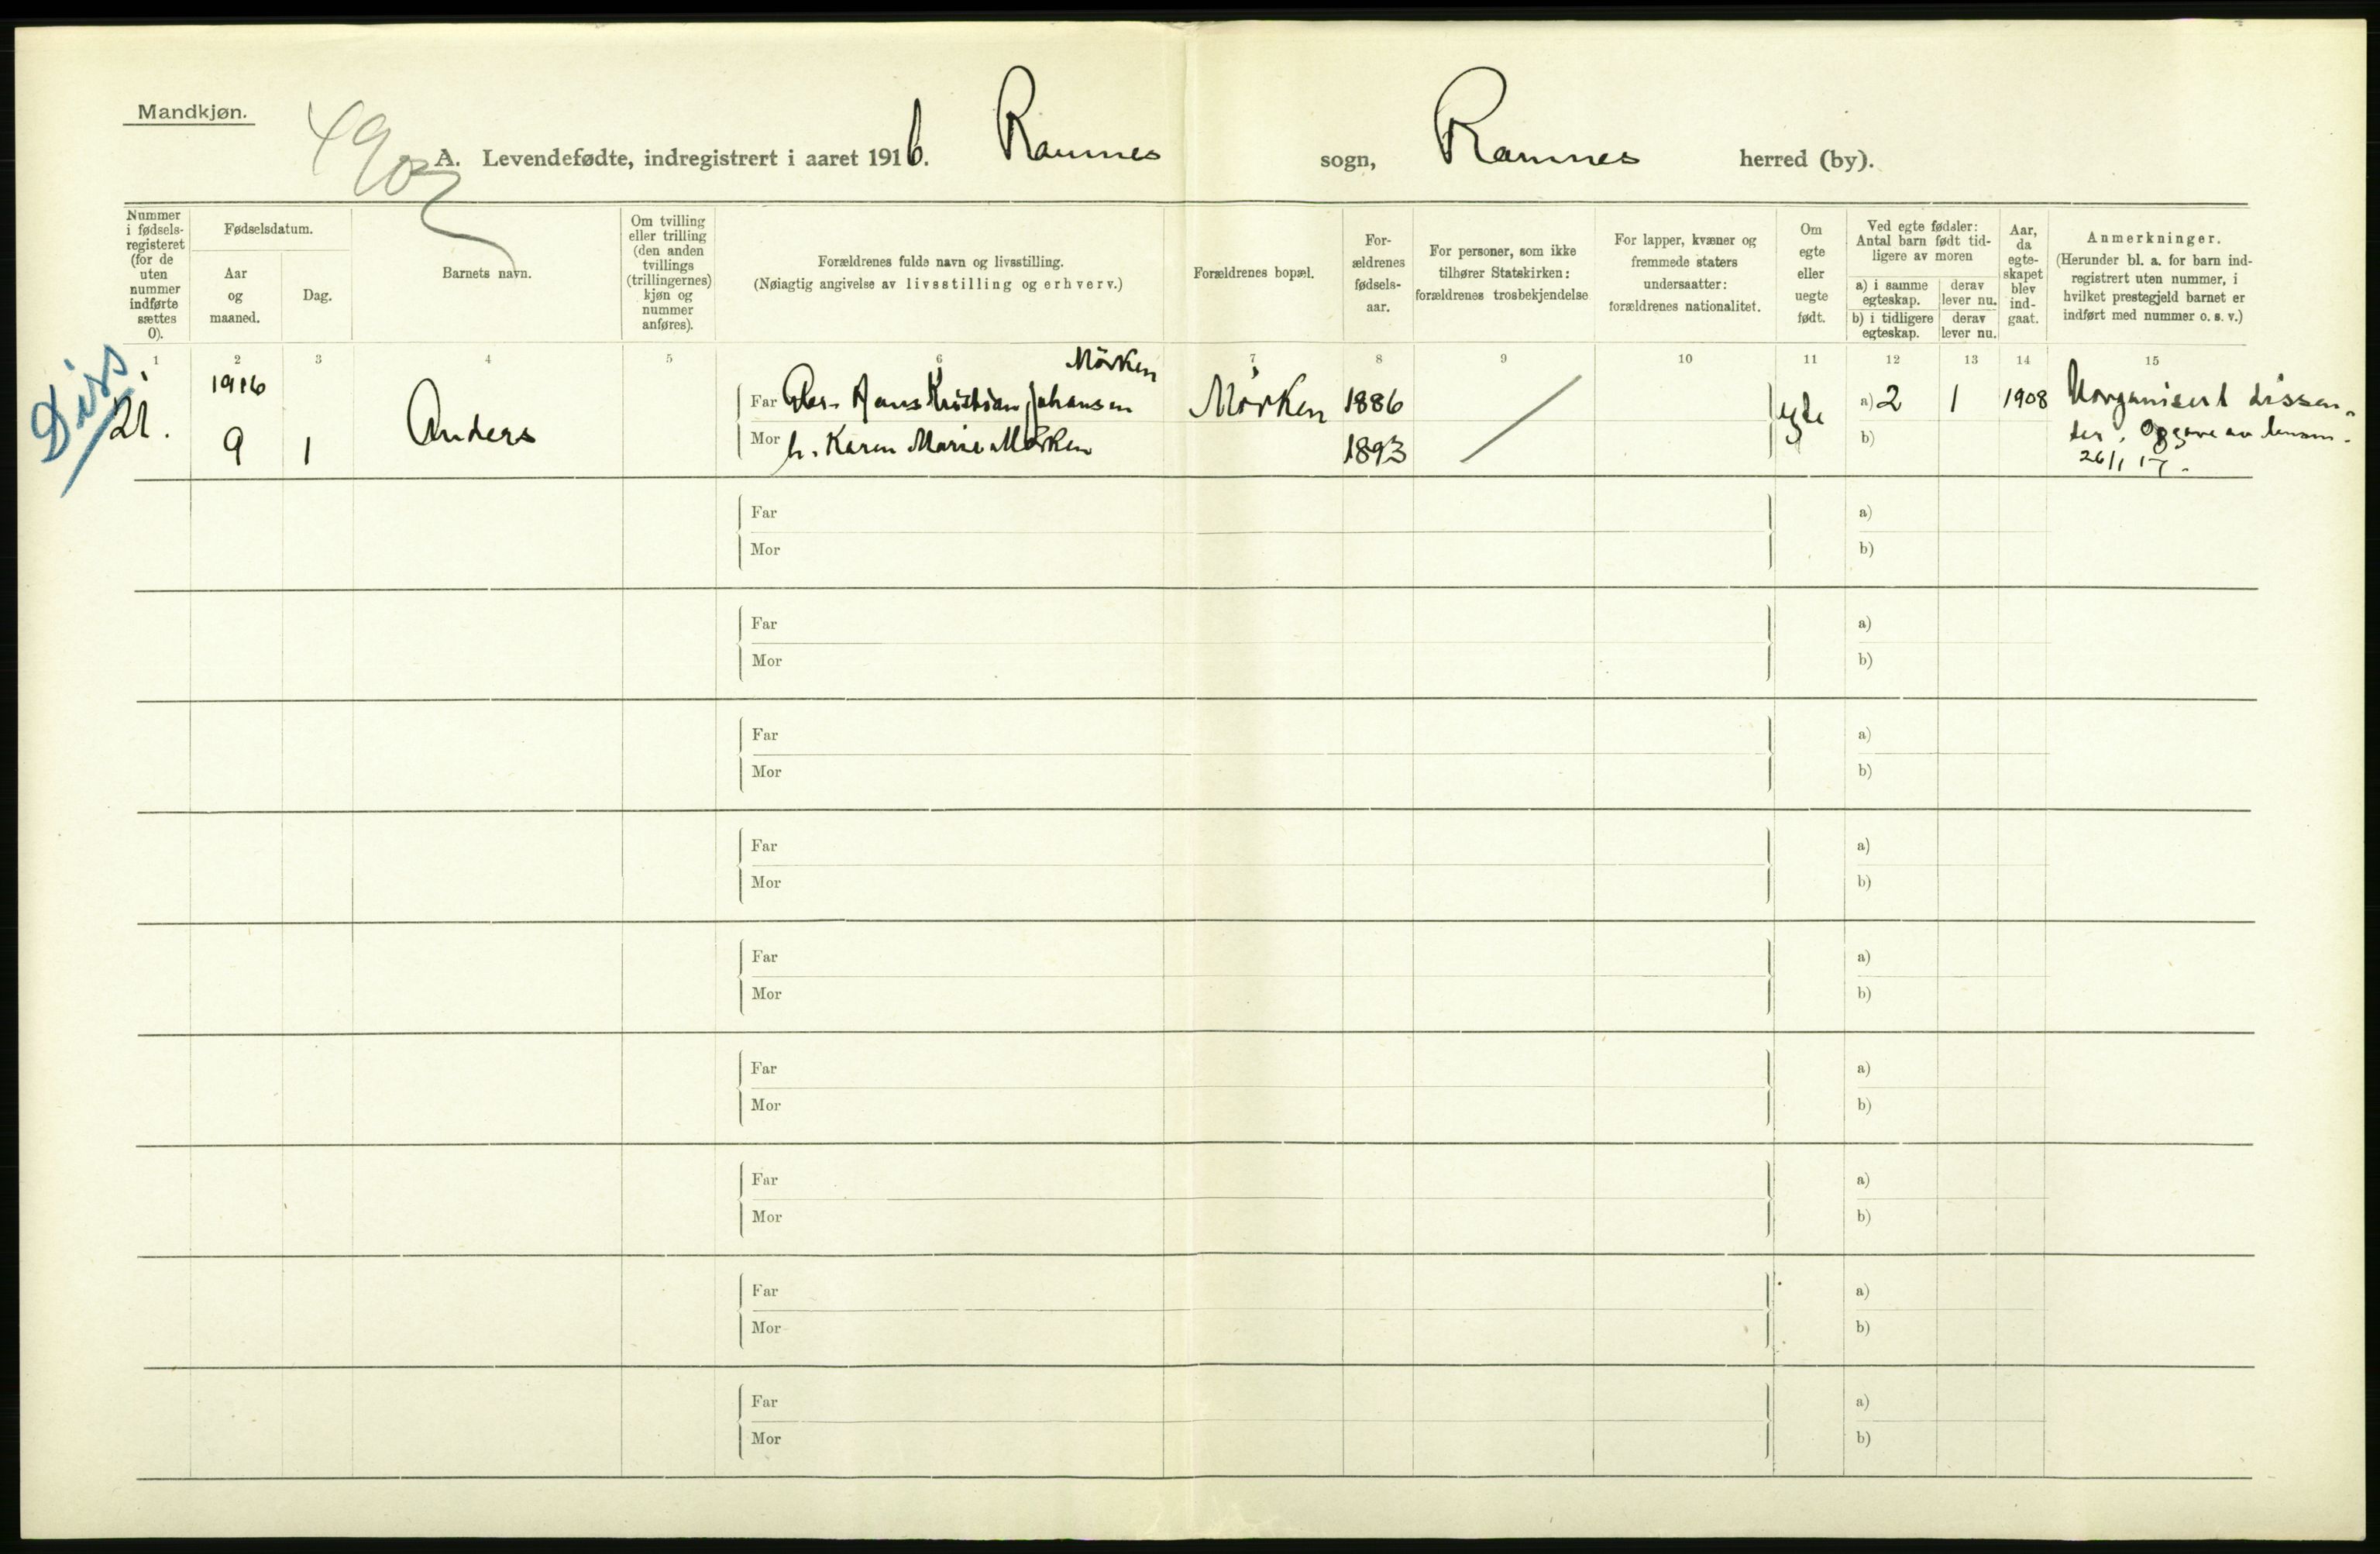 Mandkjøn.
A. Levendefødte, indregistrert i aaret 1916. Ramnes sogn, Ramnes herred (by).
Nummer i fødsels-registeret (for de uten nummer indførte sættes 0).
Fødselsdatum.
Aar og maaned.
Dag.
Barnets navn.
Om tvilling eller trilling (den anden tvillings (trillingernes) kjøn og nummer anføres).
Forældrenes fulde navn og livsstilling.
(Nøiagtig angivelse av livsstilling og erhverv.)
Forældrenes bopæl.
For-ældrenes fødsels-aar.
For personer, som ikke tilhører Statskirken: forældrenes trosbekjendelse
For lapper, kvæner og fremmede staters undersaatter: forældrenes nationalitet.
Om egte eller uegte født.
Ved egte fødsler: Antal barn født tid-ligere av moren
a) i samme egteskap.
derav lever nu.
b) i tidligere egteskap.
derav lever nu.
Aar, da egte-skapet blev ind-gaat.
Anmerkninger.
(Herunder bl. a. for barn ind-registrert uten nummer, i hvilket prestegjeld barnet er indført med nummer o. s. v.)
1 2 3 4 5 6 7 8 9 10 11 12 13 14 15
Diss
21.
1916
9 1
Anders
Mörken
Far Hans Kristian Johansen
Mor h. Karen Marie Mörken
Mörken
1886
1893
egte
a) 2 1 1908
b)
Uorganisert dissen-
ter. Opgave av lensm.
26/1 17.
Far a)
Mor b)
Far a)
Mor b)
Far a)
Mor b)
Far a)
Mor b)
Far a)
Mor b)
Far a)
Mor b)
Far a)
Mor b)
Far a)
Mor b)
Far a)
Mor b)